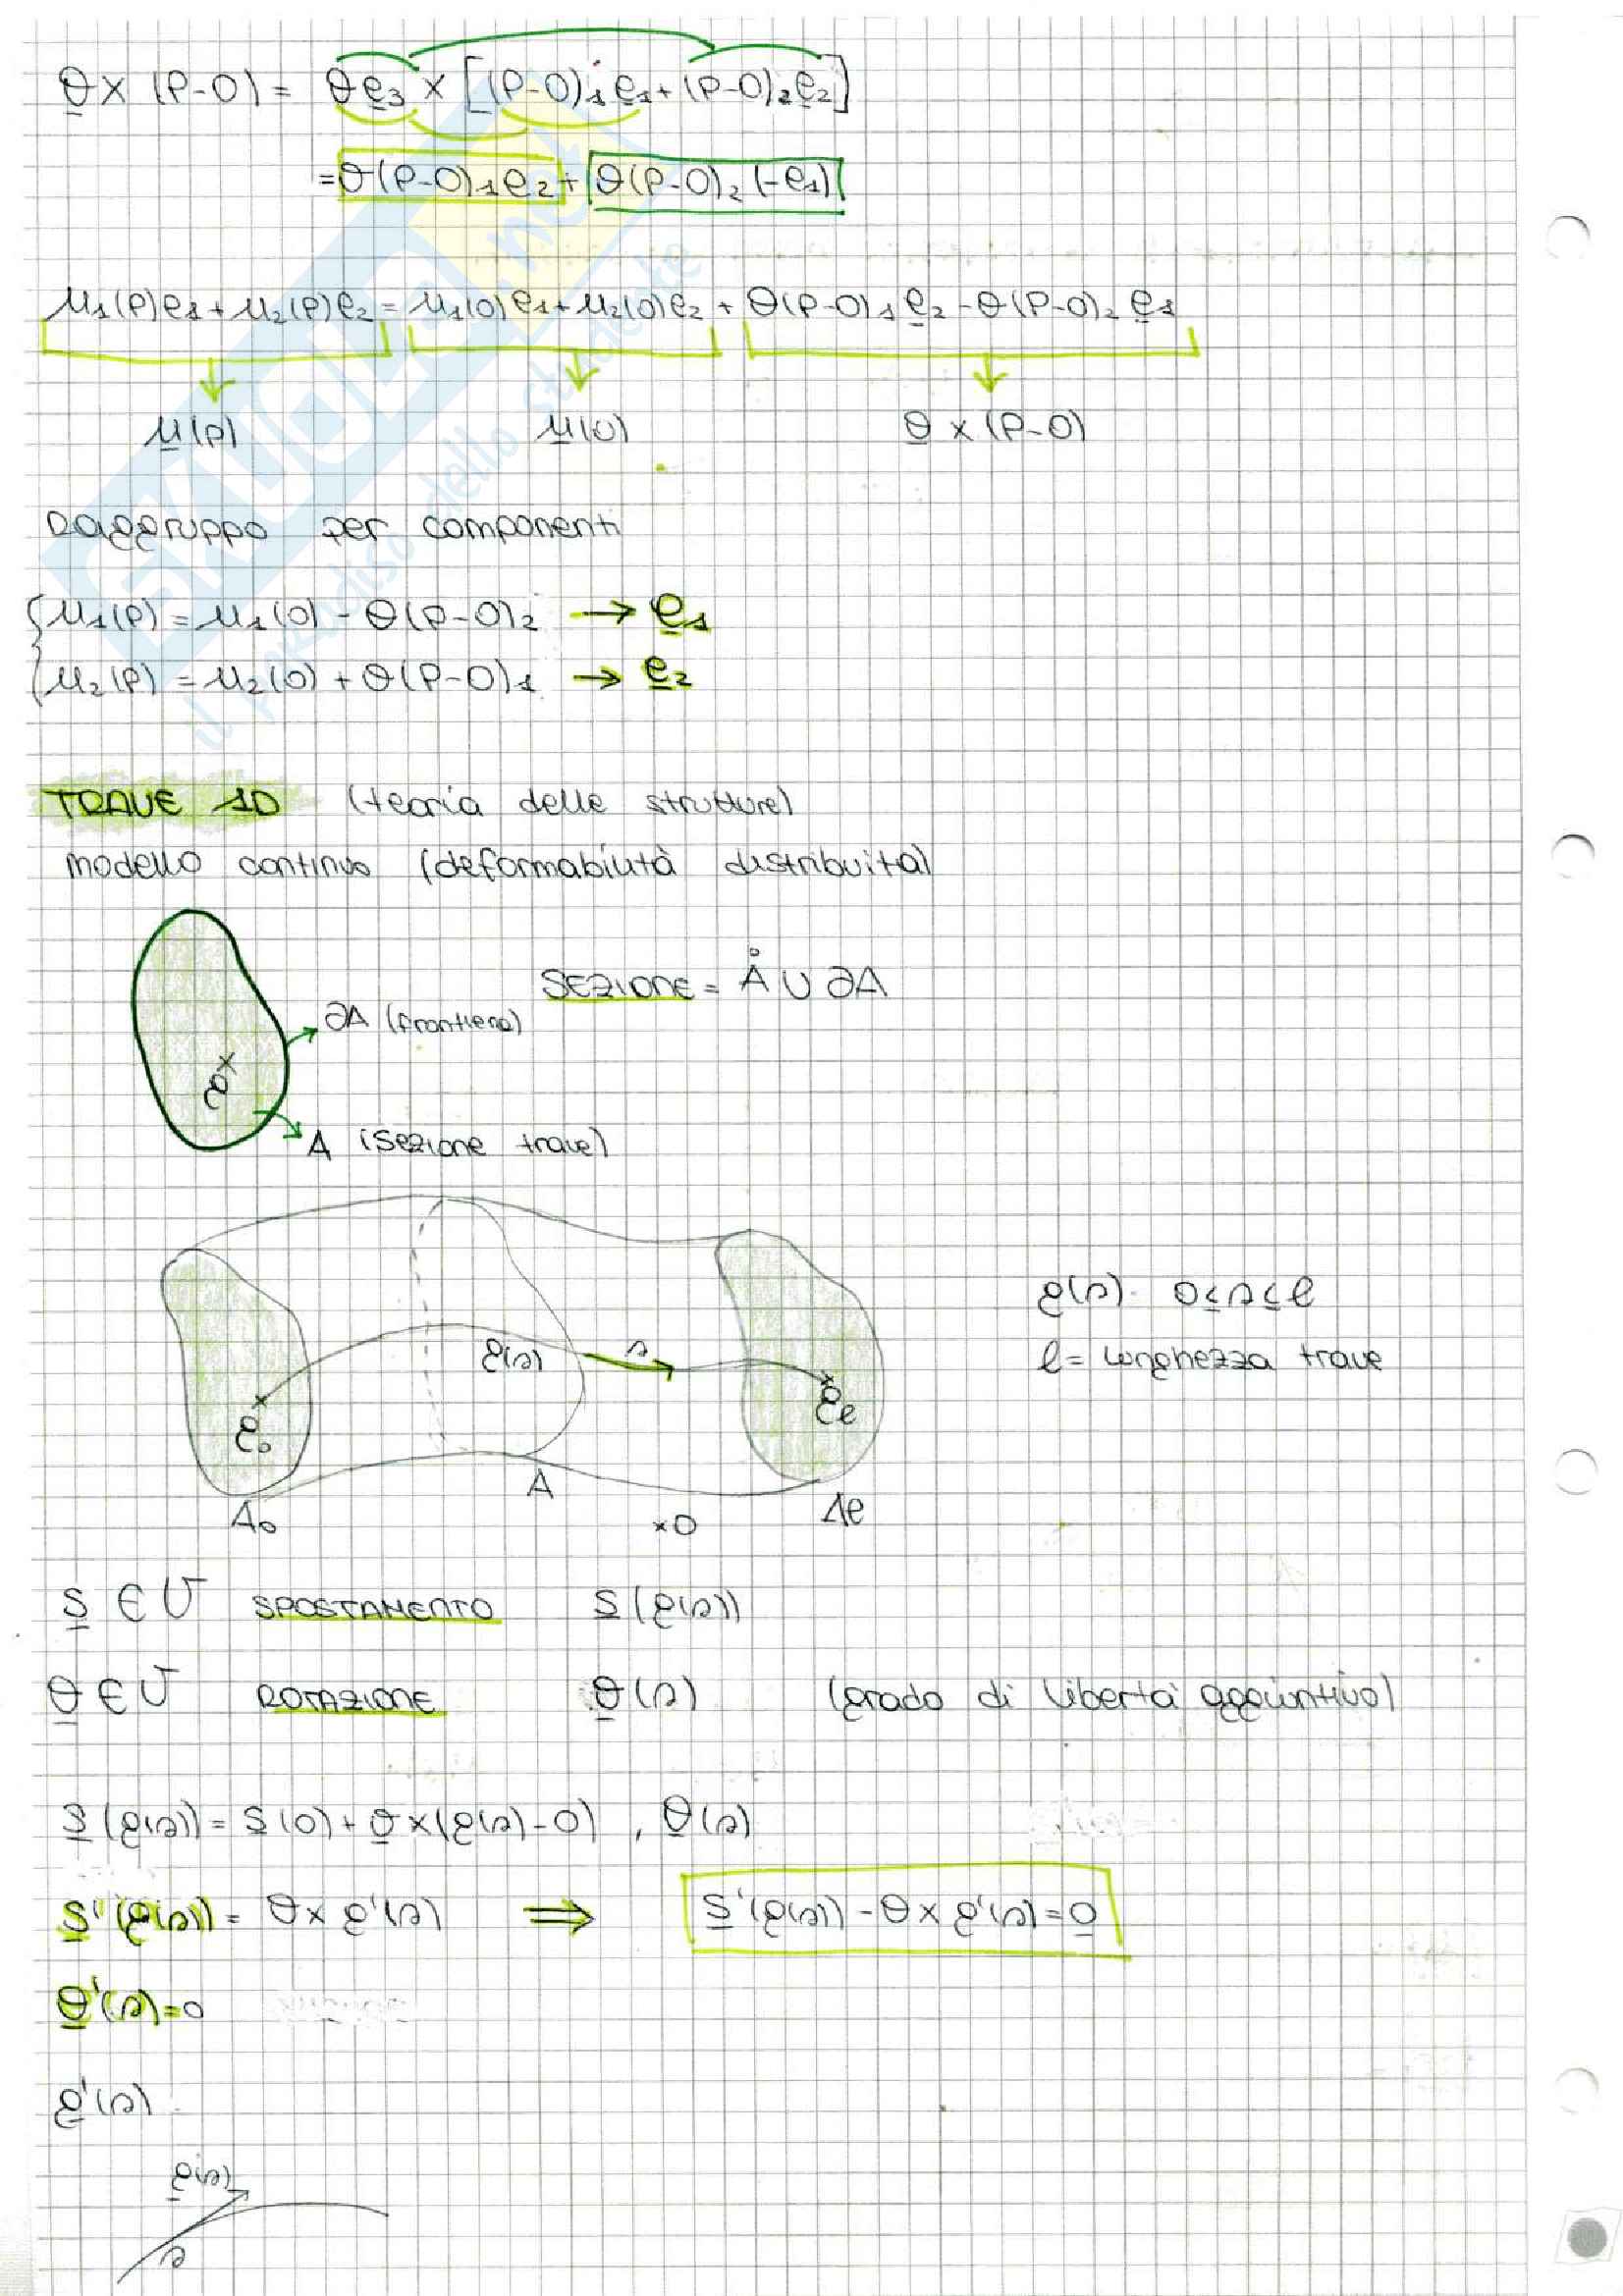 θ × (P-O) = θe₃ × [(P-O)₁e₁ + (P-O)₂e₂]
= θ(P-O)₁e₂ + θ(P-O)₂(-e₁)
u₁(P)e₁ + u₂(P)e₂ = u₁(O)e₁ + u₂(O)e₂ + θ(P-O)₁e₂ - θ(P-O)₂e₁
u(P) u(O) θ × (P-O)
Raggruppo per componenti
{ u₁(P) = u₁(O) - θ(P-O)₂ → e₁
u₂(P) = u₂(O) + θ(P-O)₁ → e₂
TRAVE 1D (teoria delle strutture)
modello continuo (deformabilità distribuita)
SEZIONE = Å ∪ ∂A
∂A (frontiera)
g
A (sezione trave)
g(s) 0 ≤ s ≤ l
g(s) s
l = lunghezza trave
g₀ gₗ
A₀ A ×O Aₗ
s ∈ U SPOSTAMENTO s(g(s))
θ ∈ U ROTAZIONE θ(s) (grado di libertà aggiuntivo)
s(g(s)) = s(O) + θ × (g(s)-O), θ(s)
s'(g(s)) = θ × g'(s) ⟹ s'(g(s)) - θ × g'(s) = 0
θ'(s) = 0
g'(s)
g'(s)
s
SKUOLA.net
il paradiso dello studente